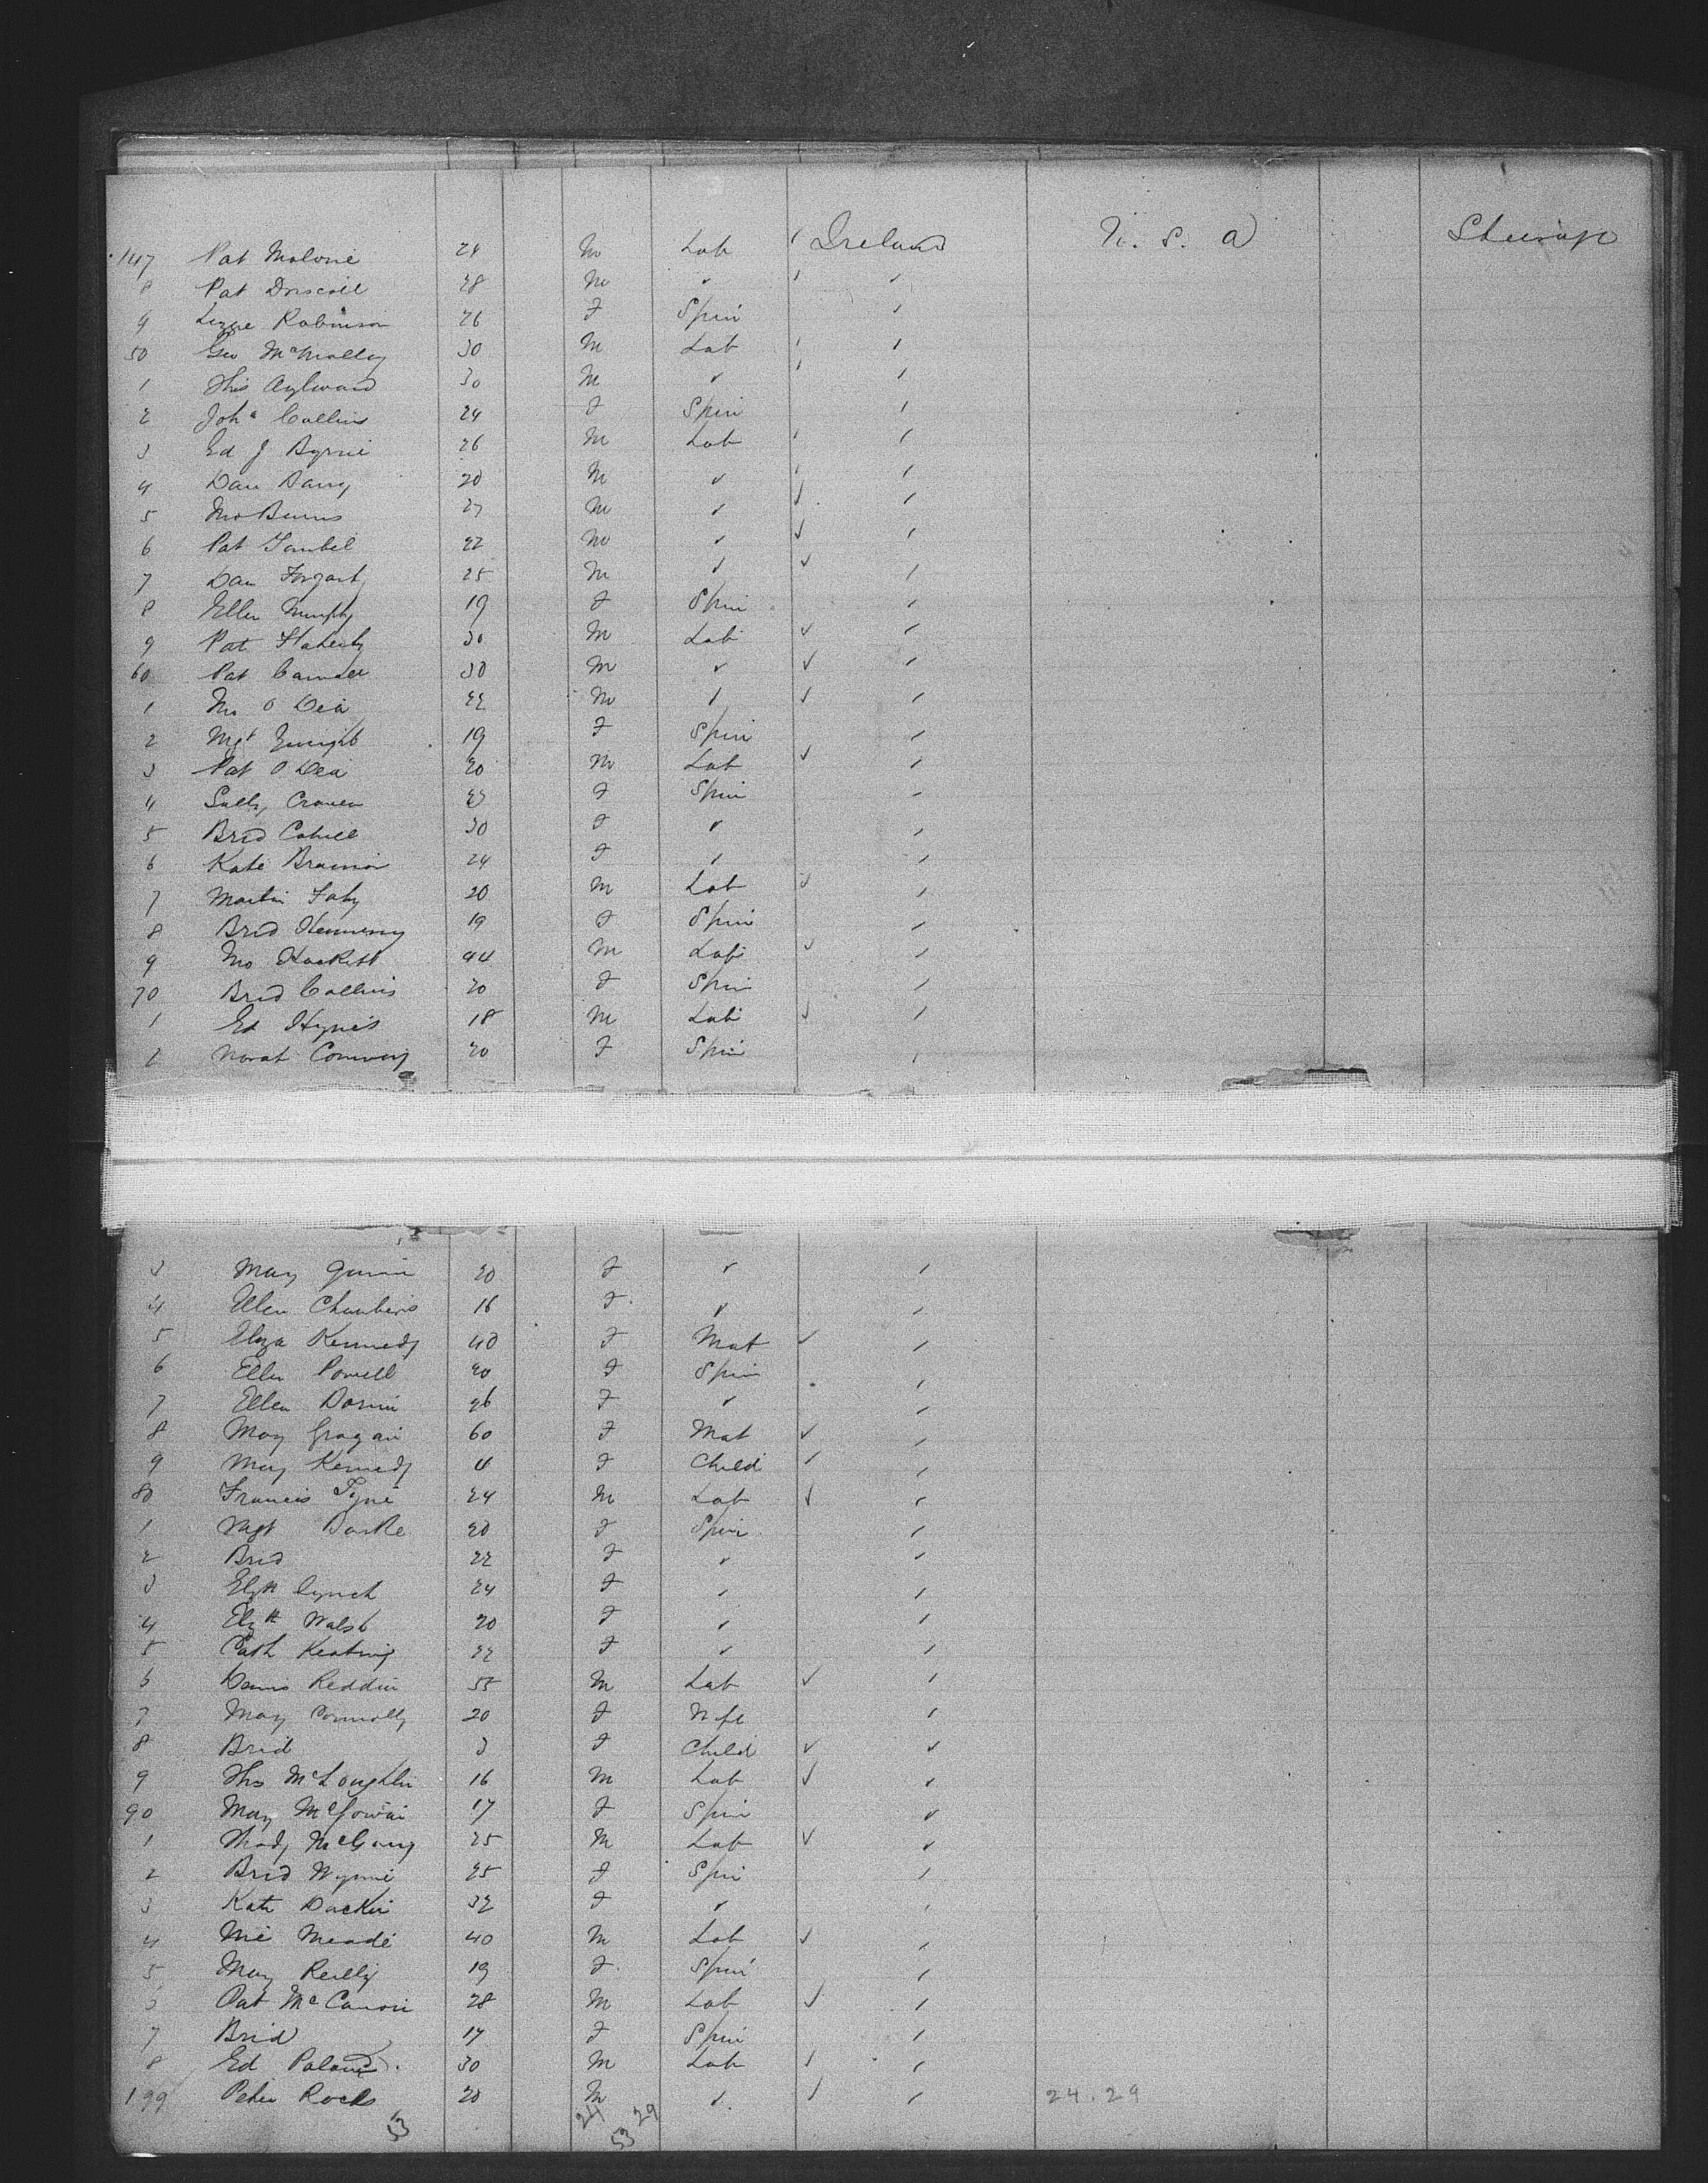 147 Pat Malone 24 M Lab Ireland U. S. A Steerage
8 Pat Driscoll 28 M
9 Lizzie Robinson 26 F Spin
50 Geo 30 M Lab
1 Ths Aylward 30 M
2 Joha Collins 24 F Spin
3 Ed J Byrne 26 M Lab
4 Dan Barry 20 M
5 Jno Burns 27 M
6 Pat 22 M
7 Dan Fogarty 25 M
8 Ellen Murphy 19 F Spin
9 Pat Flaherty 30 M Lab
60 Pat 30 M
1 O Dea 22 M
2 Mgt Enright 19 F Spin
3 Pat O Dea 20 M Lab
4 Sally Craven F Spin
5 Brid Cahill 30 F
6 Kate 24 F
7 Martin Fahy 20 M Lab
8 Brid Hennessy 19 F Spin
9 Jno Hackett 44 M Lab
70 Brid Collins 20 F Spin
1 Ed Hynes 18 M Lab
2 Norah 20 F Spin
3 Mary 20 F
4 Ellen Chambers 16 F
5 Eliza Kennedy 40 F Mat
6 Ellen Powell 20 F Spin
7 Ellen 26 F
8 Mary Grogan 60 F Mat
9 Mary Kennedy 4 F Child
80 Francis Tyne 24 M Lab
1 Mgt Burke 20 F Spin
2 Brid 22 F
3 Elzth Lynch 24 F
4 Elzth Walsh 20 F
5 Cath Keating 22 F
6 Denis Reddin 55 M Lab
7 Mary Connolly 20 F Wife
8 Brid 3 F Child
9 Ths McLoughlin 16 M Lab
90 Mary McGowan 17 F Spin
1 Thady 25 M Lab
2 Brid Wynne 25 F Spin
3 Kate 32 F
4 Mic Meade 40 M Lab
5 Mary Reilly 19 F Spin
6 Pat 28 M Lab
7 Brid 17 F Spin
8 Ed 30 M Lab
199 Peter Rocks 20 M 24.29
53 24 29
53